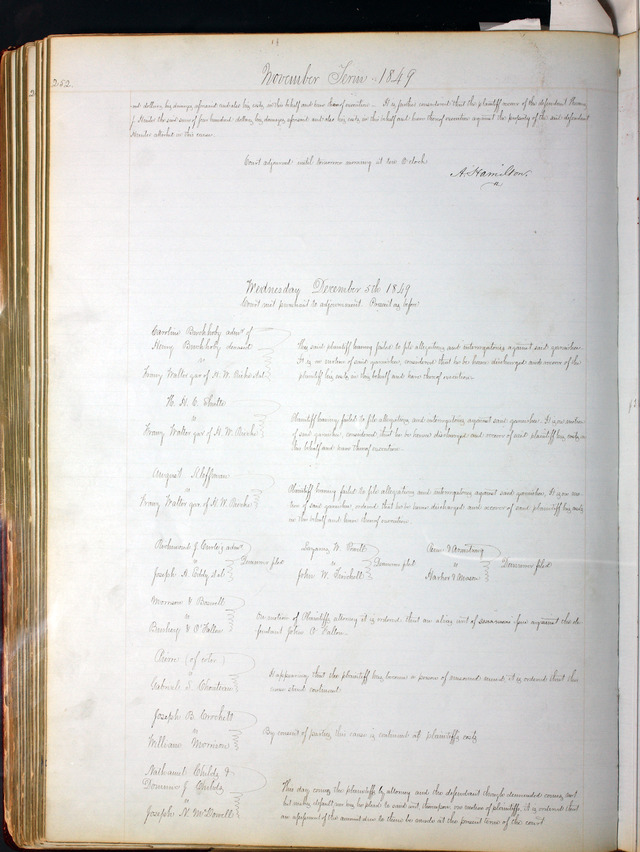 252
November Term 1849
and also his costs in this behalf and have thereof execution. It is further considered that the plaintiff recover of the defendant Thomas
J. the said sum of four hundred dollars his damages aforesaid and also his costs in this behalf and have thereof execution against the property of the said defendant
attached in this cause.
Court adjourned until tomorrow morning at ten O'clock
A. Hamilton.
Wednesday December 5th 1849
Court met pursuant to adjournment. Present as before
Caroline admx of
Henry deceased
vs
Franz Walter gar of H. W.
The said plaintiff having failed to file allegations and interrogatories against said garnishee.
It is on motion of said garnishee, considered that he be hence discharged and recover of the
plaintiff his costs in this behalf and have thereof execution.
H. C.
vs
Franz Walter gar of H. W.
Plaintiff having failed to file allegations and interrogatories against said garnishee. It is on motion
of said garnishee, considered that he be hence discharged and recover of said plaintiff his costs in
this behalf and have thereof execution.
August Kleffman
vs
Franz Walter gar of H. W.
Plaintiff having failed to file allegations and interrogatories against said garnishee. It is on mo-
tion of said garnishee, ordered that he be hence discharged and recover of said plaintiff his costs
in this behalf and have thereof execution.
J. admr
vs
Joseph H. Eddy
Demurrer filed
W.
vs
John W.
Demurrer filed
& Armstrong
vs
Harbor & Mason
Demurrer filed
Morrison &
vs
& O'Fallon
On motion of Plaintiffs attorney it is ordered that an alias writ of summons issue against the de-
fendant John O'Fallon.
Pierre (of color)
vs
Gabriel S. Chouteau
It appearing that the plaintiff has become a person of unsound mind, it is ordered that this
cause stand continued.
Joseph B. Crockett
vs
William Morrison
By consent of parties this cause is continued at plaintiffs costs
Nathaniel Childs &
Childs
vs
Joseph N. McDowell
This day comes the plaintiffs by attorney and the defendant though demanded comes not
but makes default nor has he plead to said writ, thereupon, on motion of plaintiffs, it is ordered that
an assessment of the amount due to them be made at the present term of the court